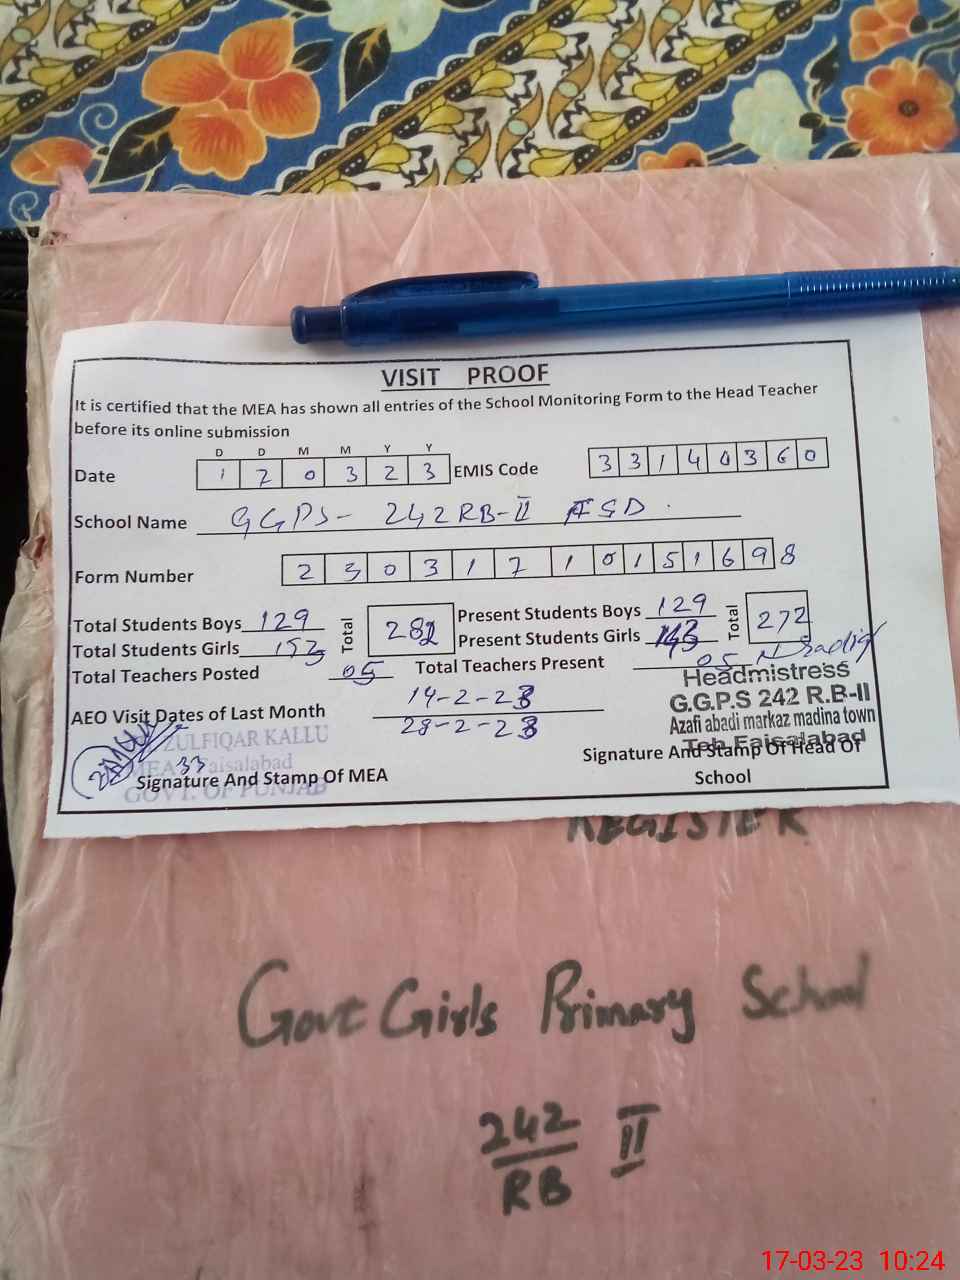 VISIT PROOF
It is certified that the MEA has shown all entries of the School Monitoring Form to the Head Teacher
before its online submission
D D M M Y Y
Date 1 7 0 3 2 3 EMIS Code 3 3 1 4 0 3 6 0
School Name GGPS- 242RB-II FSD.
Form Number 2 3 0 3 1 7 1 0 1 5 1 6 9 8
Total Students Boys 129 Total 282 Present Students Boys 129 Total 272
Total Students Girls 153 Present Students Girls 143
Total Teachers Posted 05 Total Teachers Present 05
Headmistress
G.G.P.S 242 R.B-II
Azafi abadi markaz madina town
Teh Faisalabad
AEO Visit Dates of Last Month 14-2-23
28-2-23
ZULFIQAR KALLU
MEA 33 Faisalabad
GOVT. OF PUNJAB
Signature And Stamp Of MEA
Signature And Stamp Of Head Of
School
REGISTER
Govt Girls Primary School
242 II
RB
17-03-23 10:24